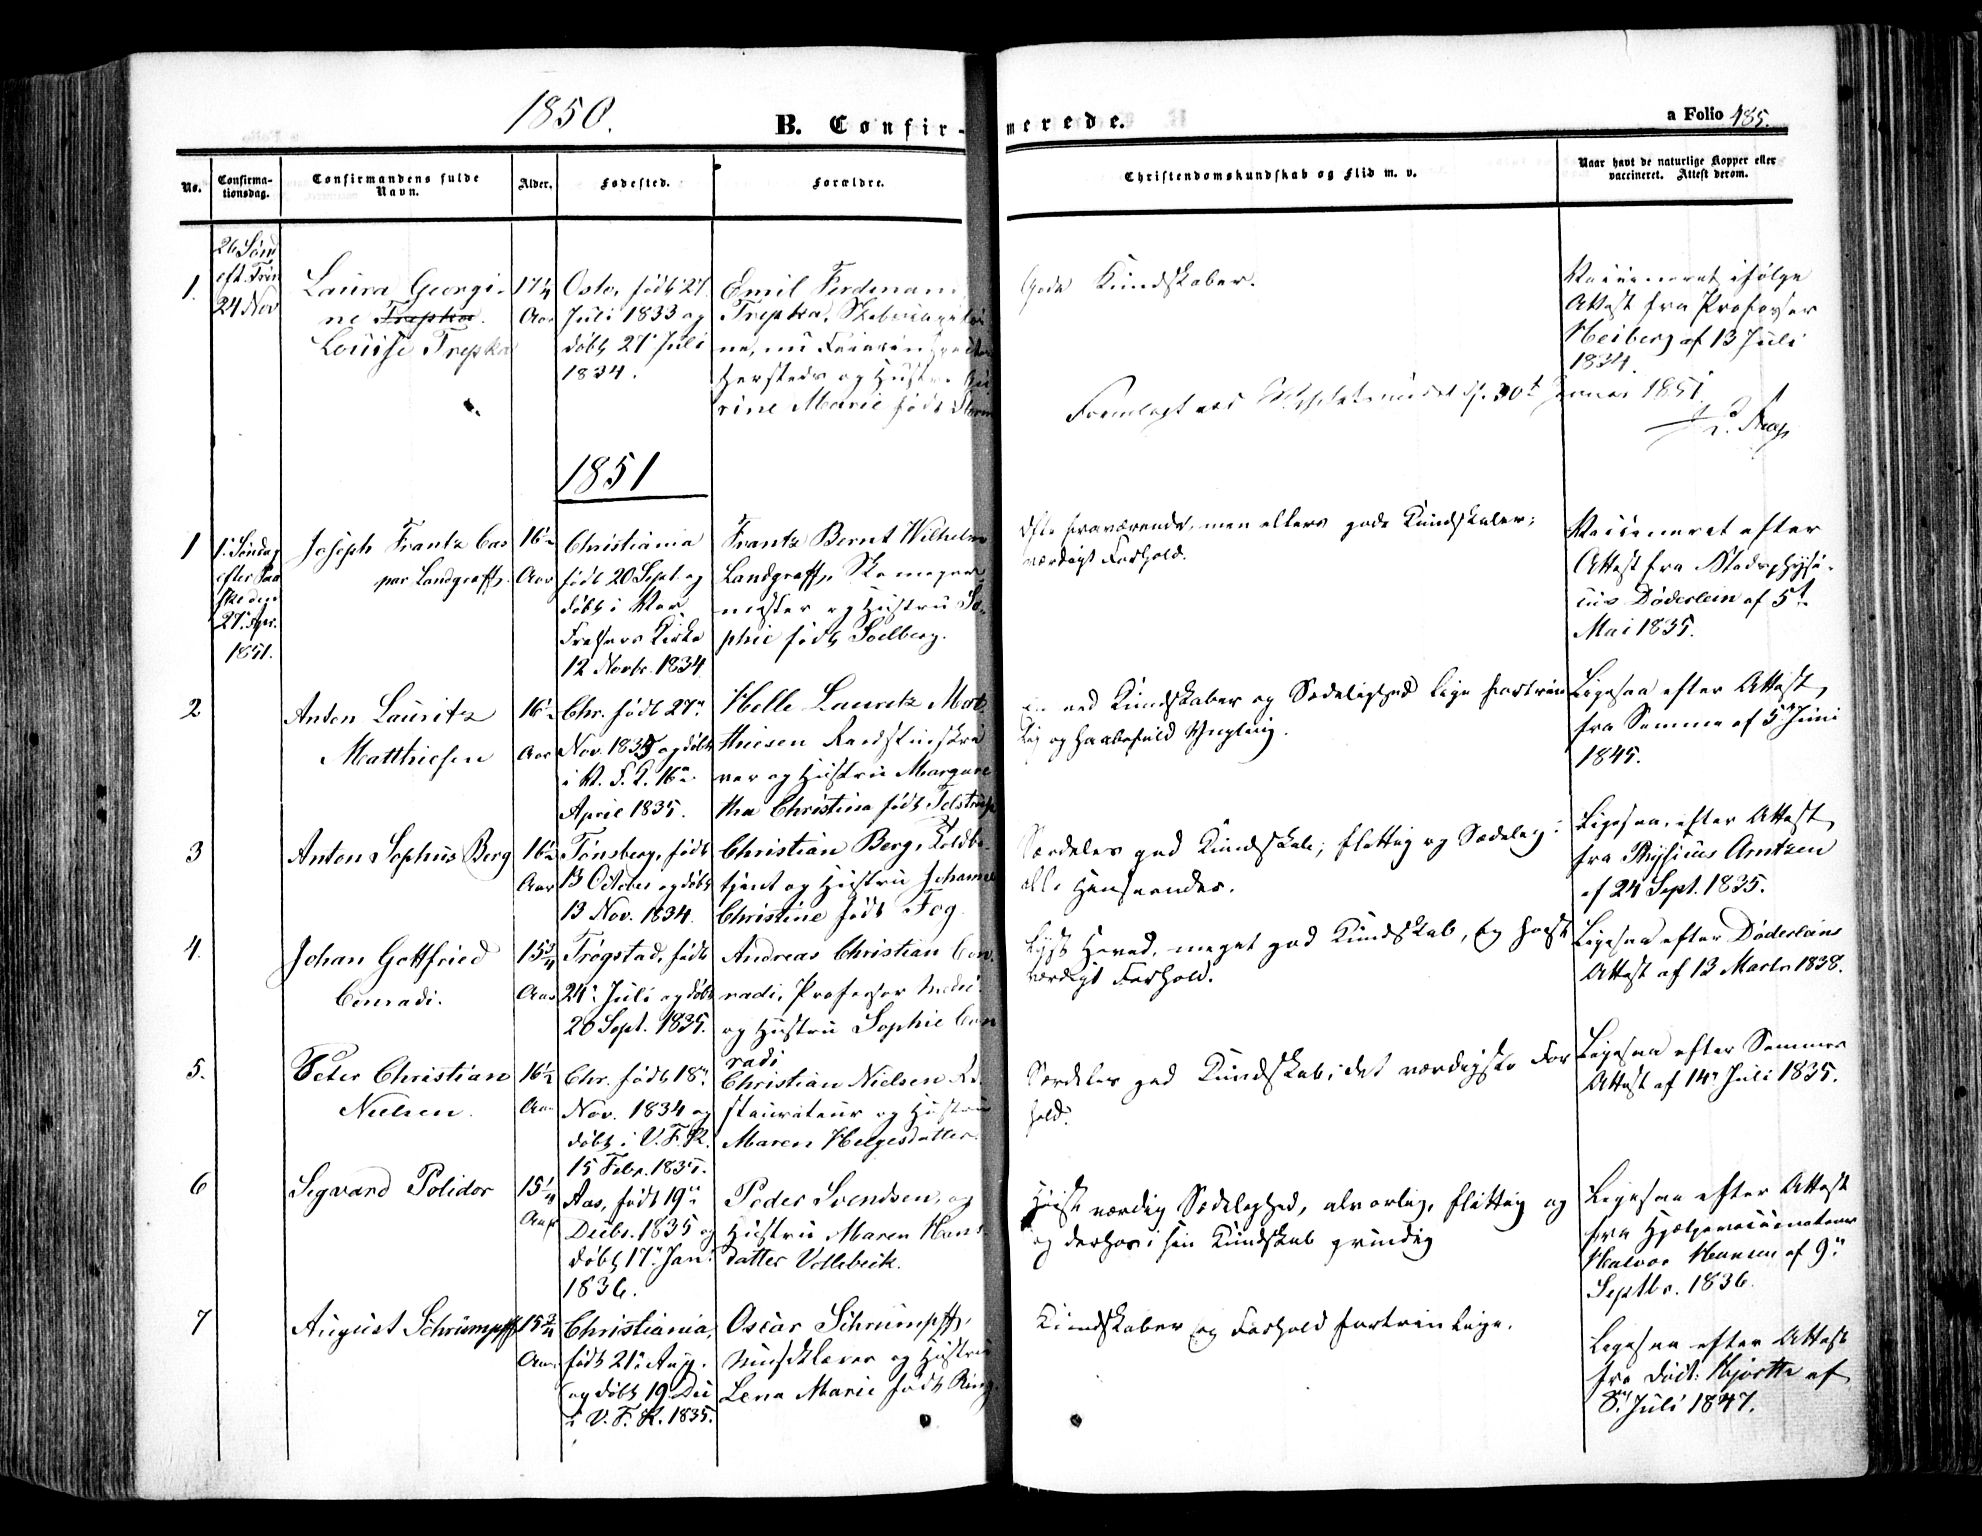 1850.
B. Confirmerede.
a Folio 185.
No.
Confirma-
tionsdag.
Confirmandens fulde
Navn.
Alder.
Fødested.
Forældre.
Christendomskundskab og Flid m. v.
Naar havt de naturlige Kopper eller
vaccineret. Attest derom.
1.
26 Sønd
eft. Trin
24 Nov
Laura Georgi-
ne Trepka.
Louise Trepka
17¼
Aar
Oslo, født 27
Juli 1833 og
døbt 27 Juli
1834.
Emil Ferdinand
Trepka,
ne, nu
og Hustru
rine Marie født
Gode Kundskaber.
Vaccineret ifølge
Attest fra Professor
Heiberg af 13 Juli
1834.
Fremlagt ved 30t Januar 1851.
1851
1
1. Søndag
efter Paa
ske den
27. Apr.
1851.
Joseph Frantz Cas
par Landgraff.
16½
Aar
Christiania
født 20 Sept. og
døbt i Vor
Frelsers Kirke
12 Novbr. 1834
Frantz Bernt Wilhelm
Landgraff, Skomager
mester og Hustru So-
phie født Solberg.
Ofte fraværende, men ellers gode Kundskaber;
værdigt Forhold.
Vaccineret efter
Attest fra Stadsphysi-
cus Døderlein af 5t
Mai 1835.
2
Anton Lauritz
Matthiesen
16½
Aar
Chr. født 27n
Nov. 1834 og døbt
i V. F. K. 16n
April 1835.
Helle Lauritz Mat
thiesen
ver og Hustru Margare
tha Christina født
en ved Kundskaber og Sædelighed lige fortrin
lig og haabefuld Yngling.
Ligesaa efter Attest
fra Samme af 5n Juni
1845.
3
Anton Sophus Berg
16½
Aar
Tønsberg, født
13 October og døbt
13 Nov. 1834.
Christian Berg, Toldbe-
tjent og Hustru Johanne
Christine født Fog.
Særdeles god Kundskab; flittig og Sædelig i
alle Henseender.
Ligesaa, efter Attest
fra Physicus Arntzen
af 24 Sept. 1835.
4.
Johan Gottfried
Conradi.
15¾
Aar
Trøgstad, født
24n Juli og døbt
20 Sept. 1835.
Andreas Christian Con-
radi, Professor Medic.
og Hustru Sophie Con
radi
Lyst Hoved, meget god Kundskab, og høist
værdigt Forhold.
Ligesaa efter Døderleins
Attest af 13 Marts 1838.
5.
Peter Christian
Nielsen.
16½
Aar
Chr. født 18n
Nov. 1834 og
døbt i V. F. K.
15 Febr. 1835.
Christian Nielsen Re-
staurateur og Hustru
Maren Helgesdatter.
Særdeles god Kundskab; det værdigste For
hold.
Ligesaa efter Sammes
Attest af 14n Juli 1835.
6
Sigvard Polidor
15¼
Aar
Aas, født 19n
Decbr. 1835 og
døbt 17n Jan.
1836.
Peder Svendsen, og
Hustru Maren Hans-
datter Vollebeck.
Høist værdig Sædelighed, alvorlig, flittig og
og derhos i sin Kundskab grundig
Ligesaa efter Attest
fra Hjælpevaccinateur
Halvor Hansen af 9n
Septbr. 1836.
7
August Schrumpff
15¾
Aar
Christiania,
født 21n Aug.
og døbt 19 Dec
i V. F. K. 1835.
Oscar Schrumpff,
og Hustru
Lena Marie født Ring.
Kundskaber og Forhold fortrinlige.
Ligesaa efter Attest
fra Doct. Hjortte af
8n Juli 1847.